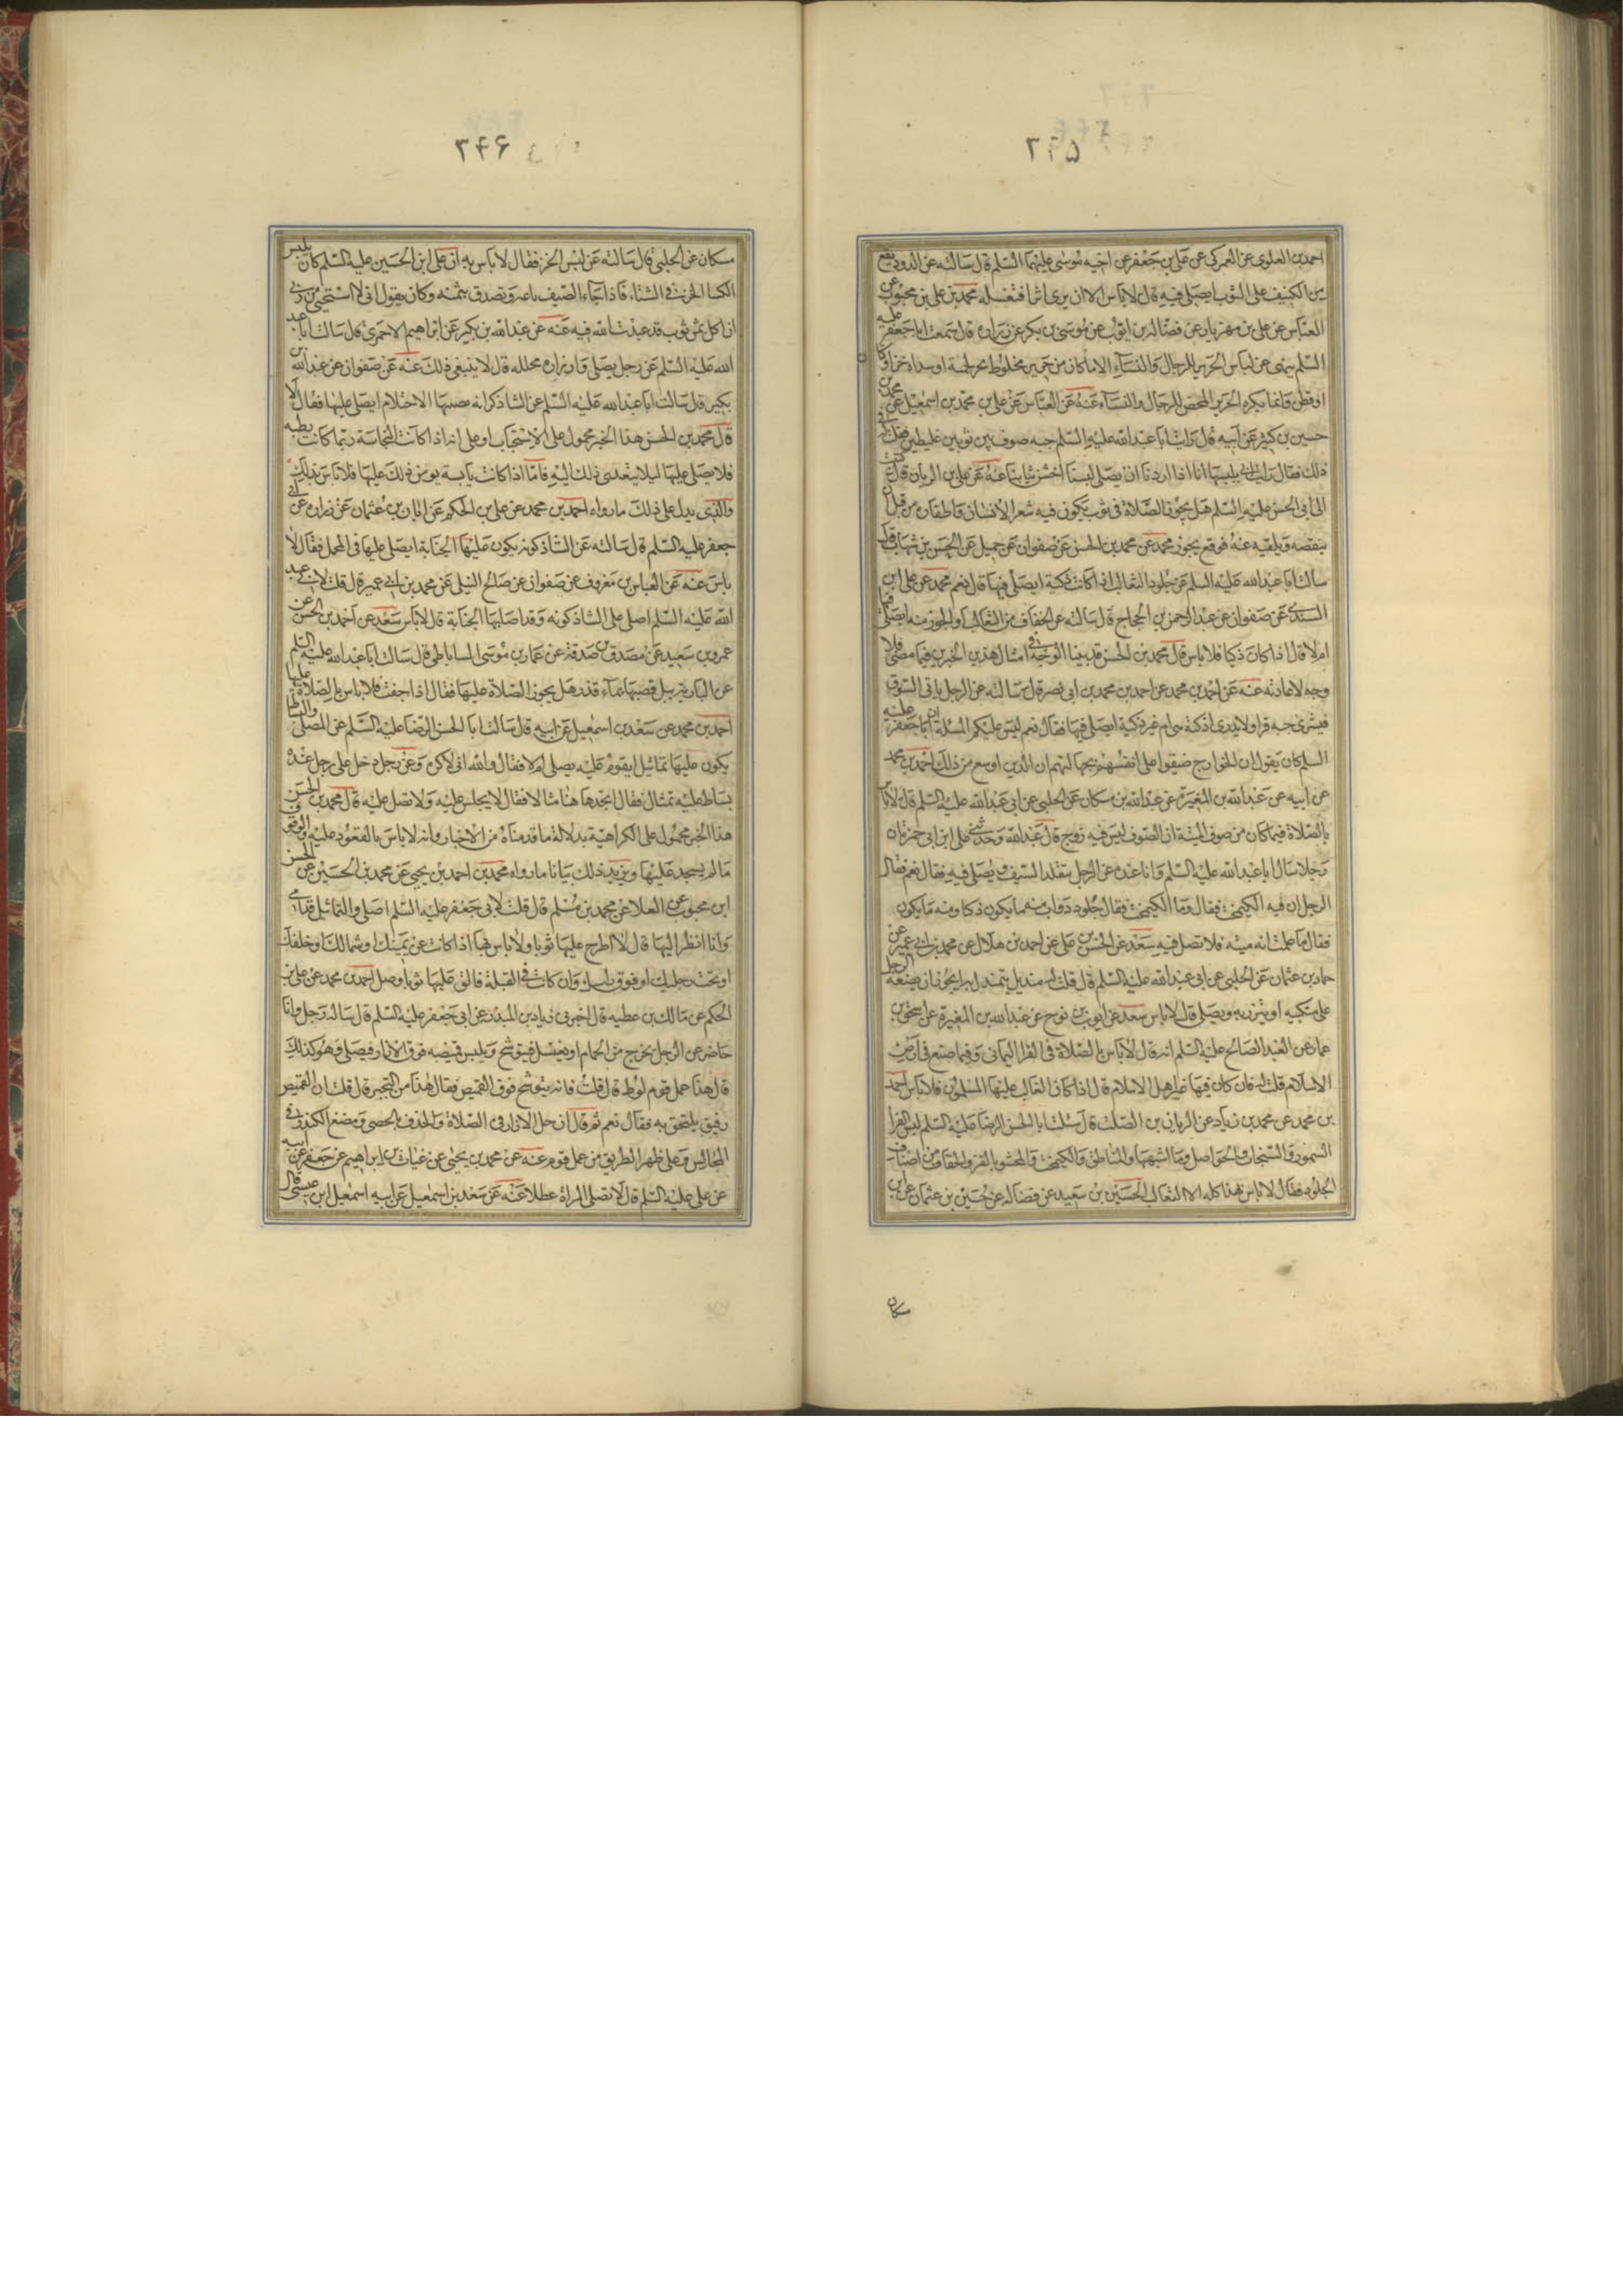 ٣٤٥
احمد بن العلوى عن العمركى عن على بن جعفر عن اخيه موسى عليهما السّلم قال سالته عن الدود يقع
من الكنيف على الثوب ايصلى فيه قال لا باس الا ان يرى اثرا فتغسله محمد بن على بن محبوب عن
العباس عن على بن مهزيار عن فضالة بن ايوب عن موسى بن بكر عن زراره قال سمعت ابا جعفر عليه
السّلم ينهى عن لباس الحرير للرجال والنساء الا ما كان من حرير مخلوط بخز لحمته او سداه خز او كتان
او قطن وانما يكره الحرير المحض للرجال والنساء عنه عن العباس عن على بن محمد بن اسمعيل عن محمد بن
حسين بن كثير عن ابيه قال رايت ابا عبد الله عليه السّلم جبه صوف بين ثوبين غليظين فقلت له فى
ذلك فقال رايت ابى يلبسها انا اذا اردنا ان نصلى لبسنا اخشن ثيابنا عنه عن على بن الريان قال كتبت
الى ابى الحسن عليه السّلم هل يجوز الصّلاة فى ثوب يكون فيه شعر الانسان واظفاره من قبل ان
ينفضه ويلقيه عنه فوقع يجوز محمد عن محمد بن الحسين عن صفوان عن جميل عن الحسن بن شهاب قال
سالت ابا عبد الله عليه السلم عن جلود الثعالب اذا كانت ذكية ايصلى فيها قال نعم محمد عن على ابن
السندى عن صفوان عن عبد الرحمن بن الحجاج قال سالته عن الخفاف من الثعالب او الجرز منه ايصلى فيها
ام لا قال اذا كان ذكيا فلا باس قال محمد بن الحسن قد بينا الوجه فى امثال هذين الخبرين فيما مضى فلا
وجه لاعادته عنه عن احمد بن محمد عن احمد بن محمد بن ابى نصر قال سالته عن الرجل ياتى السّوق
فيشترى جبه فرا ولا يدرى اذكية هى ام غير ذكية ايصلى فيها فقال نعم ليس عليكم المسئلة ان ابا جعفر عليه
السلم كان يقول ان الخوارج ضيقوا على انفسهم بجهالتهم ان الدين اوسع من ذلك احمد بن محمد
عن ابيه عن عبد الله بن المغيرة عن عبد الله بن مسكان عن الحلبى عن ابى عبد الله عليه السّلم قال لا باس
بالصّلاة فيما كان من صوف الميتة ان الصّوف ليس فيه روح قال عبد الله وحدثنى على ابن ابى حمزة ان
رجلا سال ابا عبد الله عليه السّلم وانا عنده عن الرجل يتقلد السّيف ويصلى فيه فقال نعم فقال
الرجل ان فيه الكيمخت فقال وما الكيمخت فقال جلود دواب منه ما يكون ذكيا ومنه ما يكون
فقال ما علمت انه ميته فلا تصل فيه سعد عن الحسن بن على عن احمد بن هلال عن محمد بن ابى عمير عن
حماد بن عثمان عن الحلبى عن ابى عبد الله عليه السّلم قال قلت له منديل يتمندل به ايجوز ان يضعه الرجل
على منكبيه او يتزر به ويصلى قال لا باس سعد عن ايوب بن نوح عن عبد الله بن المغيرة عن اسحق بن
عمار عن العبد الصالح عليه السّلم انه قال لا باس بالصّلاة فى الفرا اليمانى وفيما صنع فى ارض
الاسلام قلت له فان كان فيها غير اهل الاسلام قال اذا كان الغالب عليها المسلمون فلا باس احمد
بن محمد عن محمد بن زياد عن الريان بن الصّلت قال سئلت ابا الحسن الرضا عليه السّلم لبس الفرا
السّمور والسّنجاب والحواصل وما اشبهها والمناطق والكيمخت والمحشو بالقز والخفاف من اصناف
الجلود فقال لا باس بهذا كله الا الثعالب الحسين بن سعيد عن فضاله عن حسين بن عثمان عن ابن
مسكان
٣٤۶
مسكان عن الحلبى قال سالته عن لبس الخز فقال لا باس به ان على ابن الحسين عليه السّلم كان يلبس
الكسا الخز فى الشتاء فاذا جاء الصّيف باعه وتصدق بثمنه وكان يقول انى لاستحيى من ربى
ان اكل ثمن ثوب قد عبدت الله فيه عنه عن عبد الله بن بكير عن ابراهيم الاحمرى قال سالت ابا عبد
الله عليه السّلم عن رجل يصلى وازراره محلله قال لا ينبغى ذلك عنه عن صفوان عن عبد الله بن
بكير قال سالت ابا عبد الله عليه السّلم عن الشاذكونه يصيبها الاحتلام ايصلى عليها فقال لا
قال محمد بن الحسن هذا الخبر محمول على الاستحباب او على انه اذا كانت النجاسة ربما كانت رطبه
فلا يصلى عليها ليلا يتعدى ذلك اليه فاما اذا كانت يابسة يومن ذلك عليها فلا باس بذلك
والذى يدل على ذلك ما رواه احمد بن محمد عن على بن الحكم عن ابان بن عثمان عن زراره عن ابى
جعفر عليه السّلم قال سالته عن الشاذكونه يكون عليها الجنابة ايصلى عليها فى المحمل فقال لا
باس عنه عن العباس بن معروف عن صفوان عن صالح النيلى عن محمد بن ابى عمير قال قلت لابى عبد
الله عليه السّلم اصلى على الشاذكونه وقد اصابها الجنابة قال لا باس سعد عن احمد بن الحسن عن
عمرو بن سعيد عن مصدق بن صدقة عن عمار بن موسى الساباطى قال سالت ابا عبد الله عليه السّلم
عن البارية يبل قصبها بماء قذر هل يجوز الصّلاة عليها فقال اذا جفت فلا باس بالصّلاة عليها
احمد بن محمد عن سعد بن اسمعيل عن ابيه قال سالت ابا الحسن الرّضا عليه السّلم عن المصلى والبساط
يكون عليها تماثيل ايقوم عليه يصلى ام لا فقال والله انى لاكره وعن رجل دخل على رجل عنده
بساط عليه تمثال فقال اتجدها هنا مثالا فقال لا يجلس عليه ولا تصل عليه قال محمد بن الحسن
هذا الخبر محمول على الكراهية بدلالة ما قدمناه من الاخبار وانه لا باس بالقعود عليه والوقوف
ما لم يسجد عليها ويزيد ذلك بيانا ما رواه محمد بن احمد بن يحيى عن محمد بن الحسين عن الحسن
ابن محبوب عن العلا عن محمد بن مسلم قال قلت لابى جعفر عليه السّلم اصلى والتماثيل قدامى
وانا انظر اليها قال لا اطرح عليها ثوبا ولا باس بها اذا كانت عن يمينك او شمالك او خلفك
او تحت رجليك او فوق راسك وان كانت فى القبلة فالق عليها ثوبا وصل احمد بن محمد عن على بن
الحكم عن مالك بن عطيه قال اخبرنى زياد بن المنذر عن ابى جعفر عليه السّلم قال ساله رجل وانا
حاضر عن الرجل يخرج من الحمام او يغتسل فيتوشح ويلبس قميصه فوق الازار فيصلى وهو كذلك
قال هذا عمل قوم لوط قال قلت فانه يتوشح فوق القميص فقال هذا من التجبر قال قلت ان القميص
رقيق يلتحف به فقال نعم ثم قال ان حل الازار فى الصّلاة والخذف بالحصى ومضغ الكندر فى
المجالس وعلى ظهر الطريق من عمل قوم عنه عن محمد بن يحيى عن غياث بن ابراهيم عن جعفر عن ابيه
عن على عليه السّلم قال لا تصلى المراة عطلا عنه عن سعد بن اسمعيل عن ابيه اسمعيل ابن عيسى قال